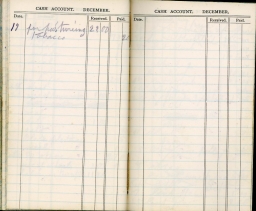 CASH ACCOUNT. DECEMBER.
Date. Received. Paid.
19 for
tobacco
CASH ACCOUNT. DECEMBER.
Date. Received. Paid.